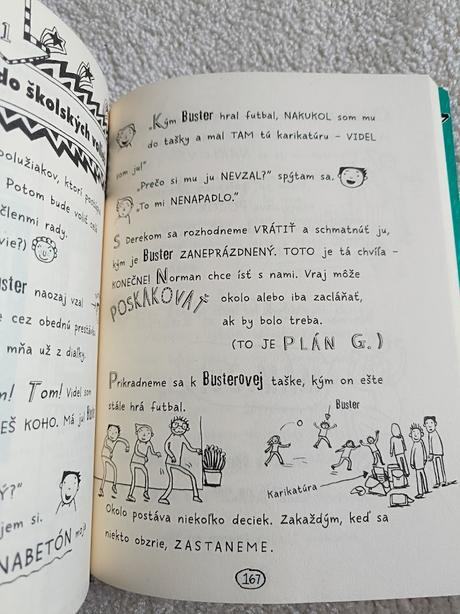 do školských
polužiakov, ktorí
Potom bude voliť
členmi rady.
vie?)
uster naozaj vzal
e cez obednú
mňa už z diaľky.
m! Tom! Videl som
EŠ KOHO. Má ju
Ý?"
jem si.
NABETÓN
„Kým Buster hral futbal, NAKUKOL som mu
do tašky a mal TAM tú karikatúru – VIDEL
som ju!"
„Prečo si mu ju NEVZAL?" spýtam sa.
„To mi NENAPADLO."
S Derekom sa rozhodneme VRÁTIŤ a schmatnúť ju,
kým je Buster ZANEPRÁZDNENÝ. TOTO je tá chvíľa –
KONEČNE! Norman chce ísť s nami. Vraj môže
POSKAKOVAŤ okolo alebo iba zacláňať,
ak by bolo treba.
(TO JE PLÁN G.)
Prikradneme sa k Busterovej taške, kým on ešte
stále hrá futbal.
Buster
Karikatúra
Okolo postáva niekoľko deciek. Zakaždým, keď sa
niekto obzrie, ZASTANEME.
167